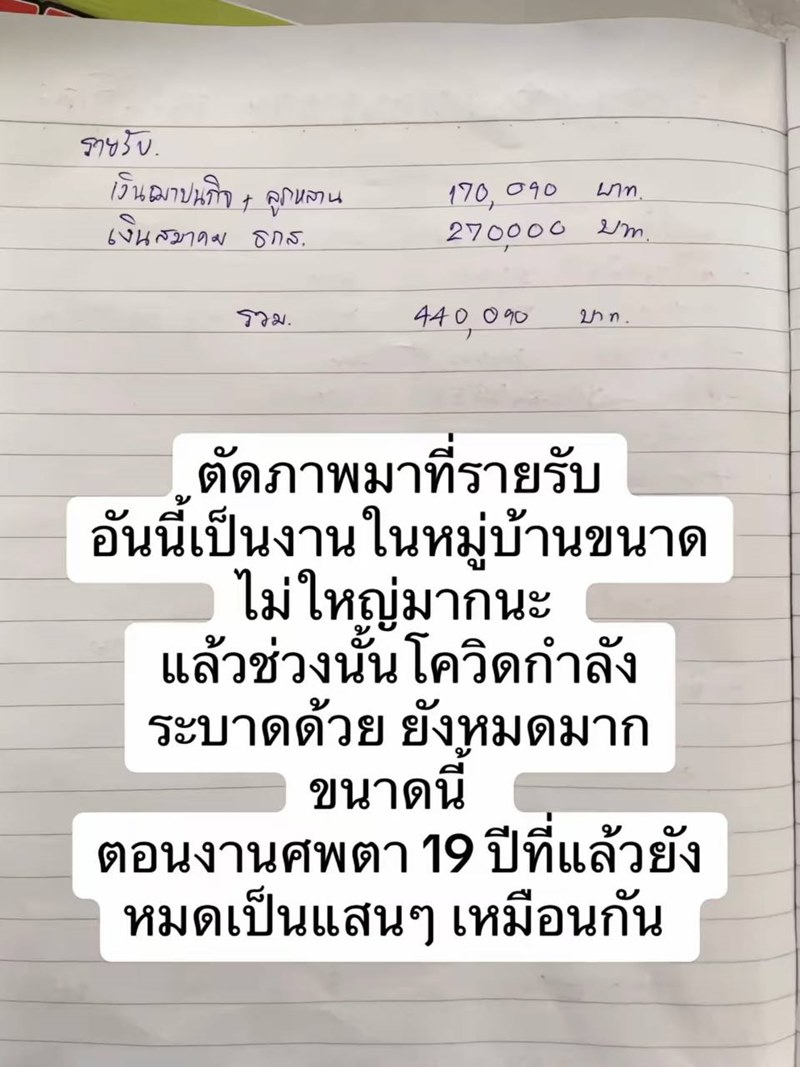 รายรับ.
เงินฌาปนกิจ + ลูกหลาน 170,090 บาท.
เงินสมาคม ธกส. 270,000 บาท.
รวม. 440,090 บาท.
ตัดภาพมาที่รายรับ
อันนี้เป็นงานในหมู่บ้านขนาด
ไม่ใหญ่มากนะ
แล้วช่วงนั้นโควิดกำลัง
ระบาดด้วย ยังหมดมาก
ขนาดนี้
ตอนงานศพตา 19 ปีที่แล้วยัง
หมดเป็นแสนๆ เหมือนกัน